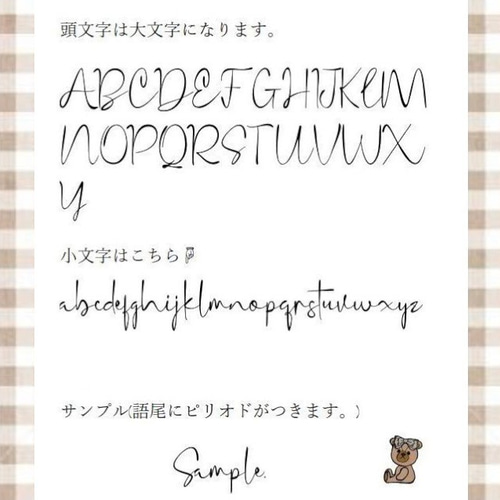 頭文字は大文字になります。
ABCDEFGHIJKLM
NOPQRSTUVWX
Y
小文字はこちら☟
abcdefghijklmnopqrstuvwxyz
サンプル(語尾にピリオドがつきます。)
Sample.